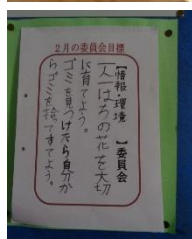 2月の委員会目標
【情報・環境　】委員会
一人一はちの花を大切
に育てよう。
ゴミを見つけたら自分か
らゴミを捨てよう。